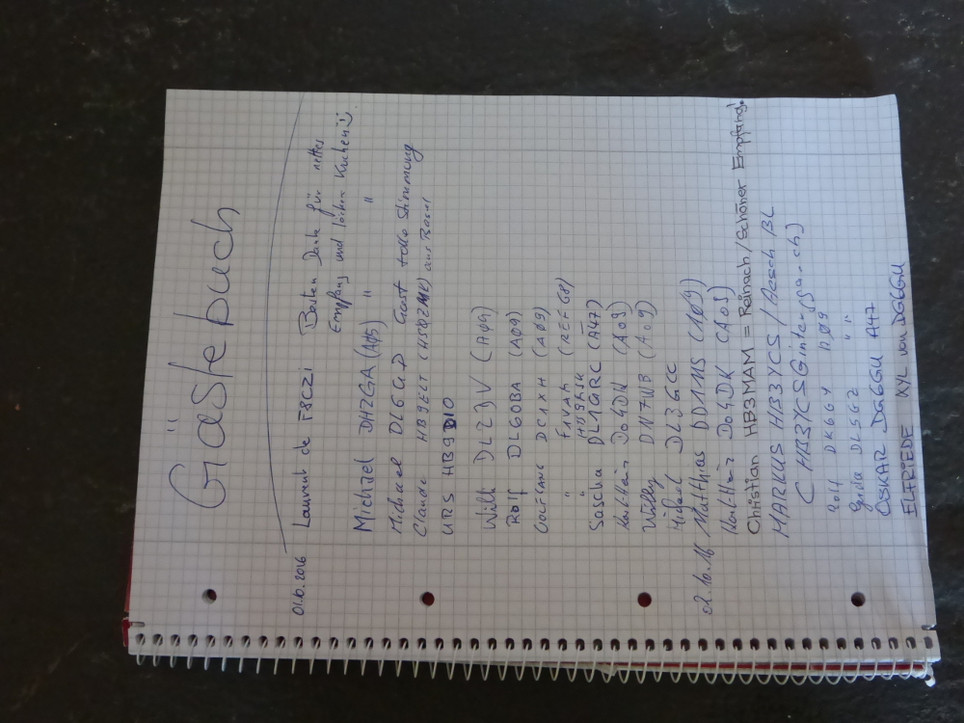 Gästebuch
01.10.2016 Laurent de F8CZI Besten Dank für netten
Empfang und leckren Kuchen
Michael DH2GA (AØ5) " "
Michael DL6GD Gast tolle Stimmung
Claude HB9ELT aus Basel
URS HB9DIO
Willi DL2 V (AØ9)
Rolf DL6OBA (AØ9)
DC1XH (AØ9)
" F1VAH (REF 68)
" HB9
Sascha DL1GRC (A47)
DO4DN (A09)
Willy DN7WB (A09)
Michael DL3GCC
02.10.16 Matthias DD1MS (109)
DO4DK (A05)
Christian HB3MAM = Reinach / Schöner Empfang!
MARKUS HB3YCS / Aesch BL
( HB3YCS
Rolf DK6GY AØ9
DL5GZ "
OSKAR DG6GU A47
ELFRIEDE XYL von DG6GU